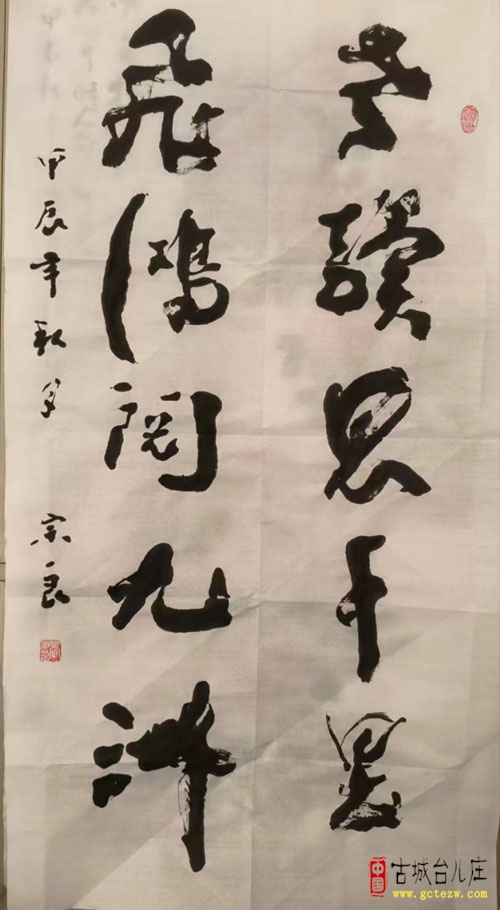 老驥思千里
飛鴻閱九洲
甲辰年秋月 宗良
中国
古城台儿庄
www.gctezw.com